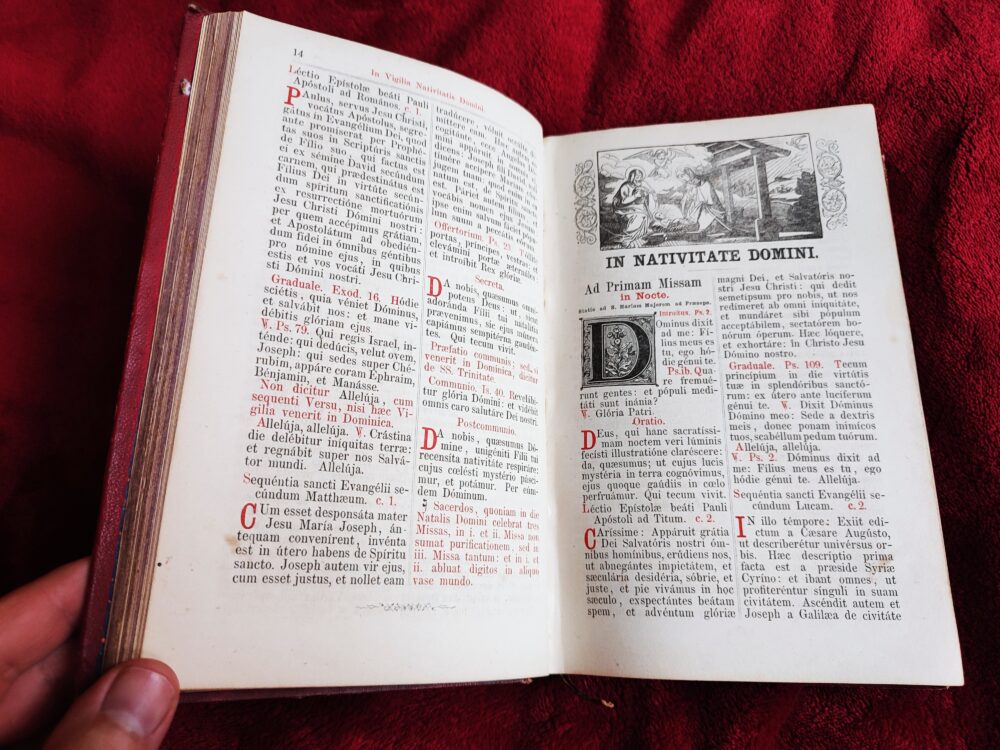 14
In Vigilia Nativitatis Domini.
Léctio Epístolæ beáti Pauli
Apóstoli ad Romános. c. 1.
PAulus, servus Jesu Christi,
vocátus Apóstolus, segre-
gátus in Evangélium Dei, quod
ante promíserat per Prophé-
tas suos in Scriptúris sanctis
de Fílio suo, qui factus est
ei ex sémine David secúndum
carnem, qui prædestinátus est
Fílius Dei in virtúte secún-
dum spíritum sanctificatiónis
ex resurrectióne mortuórum
Jesu Christi Dómini nostri:
per quem accépimus grátiam,
et Apostolátum ad obedién-
dum fídei in ómnibus géntibus
pro nómine ejus, in quibus
estis et vos vocáti Jesu Chri-
sti Dómini nostri.
Graduale. Exod. 16. Hódie
sciétis, quia véniet Dóminus,
et salvábit nos: et mane vi-
débitis glóriam ejus.
℣. Ps. 79. Qui regis Israel, in-
ténde: qui dedúcis, velut ovem,
Joseph: qui sedes super Ché-
rubim, appáre coram Ephraim,
Bénjamin, et Manásse.
Non dicitur Allelúja, cum
sequenti Versu, nisi hæc Vi-
gilia venerit in Dominica.
Allelúja, allelúja. ℣. Crástina
die delébitur iníquitas terræ:
et regnábit super nos Salvá-
tor mundi. Allelúja.
Sequéntia sancti Evangélii se-
cúndum Matthæum. c. 1.
CUm esset desponsáta mater
Jesu María Joseph, án-
tequam convenírent, invénta
est in útero habens de Spíritu
sancto. Joseph autem vir ejus,
cum esset justus, et nollet eam
tradúcere, vóluit occúlte di-
míttere eam. Hæc autem eo
cogitánte, ecce Angelus
appáruit in
dicens: Joseph
timére accípere Maríam
jugem tuam: quod enim
natum est, de
est. Páriet autem fílium: et
vocábis nomen ejus
ipse enim salvum fáciet pópu-
lum suum a peccátis eórum.
Offertorium. Ps. 23. Tóllite
portas, príncipes, vestras: et
elevámini portæ æternáles,
et introíbit Rex glóriæ.
Secreta.
DA nobis, quæsumus, omní-
potens Deus: ut, sicut
adoránda Fílii tui natalítia
prævenímus, sic ejus múnera
capiámus sempitérna gaudén-
tes. Qui tecum vivit.
Præfatio communis; sed, si
venerit in Dominica, dicitur
de SS. Trinitate.
Communio. Is. 40. Revelábi-
tur glória Dómini: et vidébit
omnis caro salutáre Dei nostri.
Postcommunio.
DA nobis, quæsumus Dó-
mine, unigéniti Fílii tui
recensíta nativitáte respiráre:
cujus cœlésti mystério pásci-
mur, et potámur. Per eúm-
dem Dóminum.
Sacerdos, quoniam in die
Natalis Domini celebrat tres
Missas, in i. et ii. Missa non
sumat purificationem, sed in
iii. Missa tantum: et in i. et
ii. abluat digitos in aliquo
vase mundo.
IN NATIVITATE DOMINI.
Ad Primam Missam
in Nocte.
Statio ad S. Mariam Majorem ad Præsepe.
Introitus. Ps. 2.
DOminus dixit
ad me: Fí-
lius meus es
tu, ego hó-
die génui te.
Ps. ib. Qua-
re fremué-
runt gentes: et pópuli medi-
táti sunt inánia?
℣. Glória Patri.
Oratio.
DEus, qui hanc sacratíssi-
mam noctem veri lúminis
fecísti illustratióne claréscere:
da, quæsumus; ut cujus lucis
mystéria in terra cognóvimus,
ejus quoque gáudiis in cœlo
perfruámur. Qui tecum vivit.
Léctio Epístolæ beáti Pauli
Apóstoli ad Titum. c. 2.
CArissime: Appáruit grátia
Dei Salvatóris nostri óm-
nibus homínibus, erúdiens nos,
ut abnegántes impietátem, et
sæculária desidéria, sóbrie, et
juste, et pie vivámus in hoc
sæculo, exspectántes beátam
spem, et advéntum glóriæ
magni Dei, et Salvatóris no-
stri Jesu Christi: qui dedit
semetípsum pro nobis, ut nos
redímeret ab omni iniquitáte,
et mundáret sibi pópulum
acceptábilem, sectatórem bo-
nórum óperum. Hæc lóquere,
et exhortáre: in Christo Jesu
Dómino nostro.
Graduale. Ps. 109. Tecum
princípium in die virtútis
tuæ in splendóribus sanctó-
rum: ex útero ante lucíferum
génui te. ℣. Dixit Dóminus
Dómino meo: Sede a dextris
meis, donec ponam inimícos
tuos, scabéllum pedum tuórum.
Allelúja, allelúja.
℣. Ps. 2. Dóminus dixit ad
me: Fílius meus es tu, ego
hódie génui te. Allelúja.
Sequéntia sancti Evangélii se-
cúndum Lucam. c. 2.
IN illo témpore: Exiit edí-
ctum a Cæsare Augústo,
ut describerétur univérsus or-
bis. Hæc descríptio prima
facta est a præside Syriæ
Cyríno: et ibant omnes, ut
profiteréntur sínguli in suam
civitátem. Ascéndit autem et
Joseph a Galilæa de civitáte